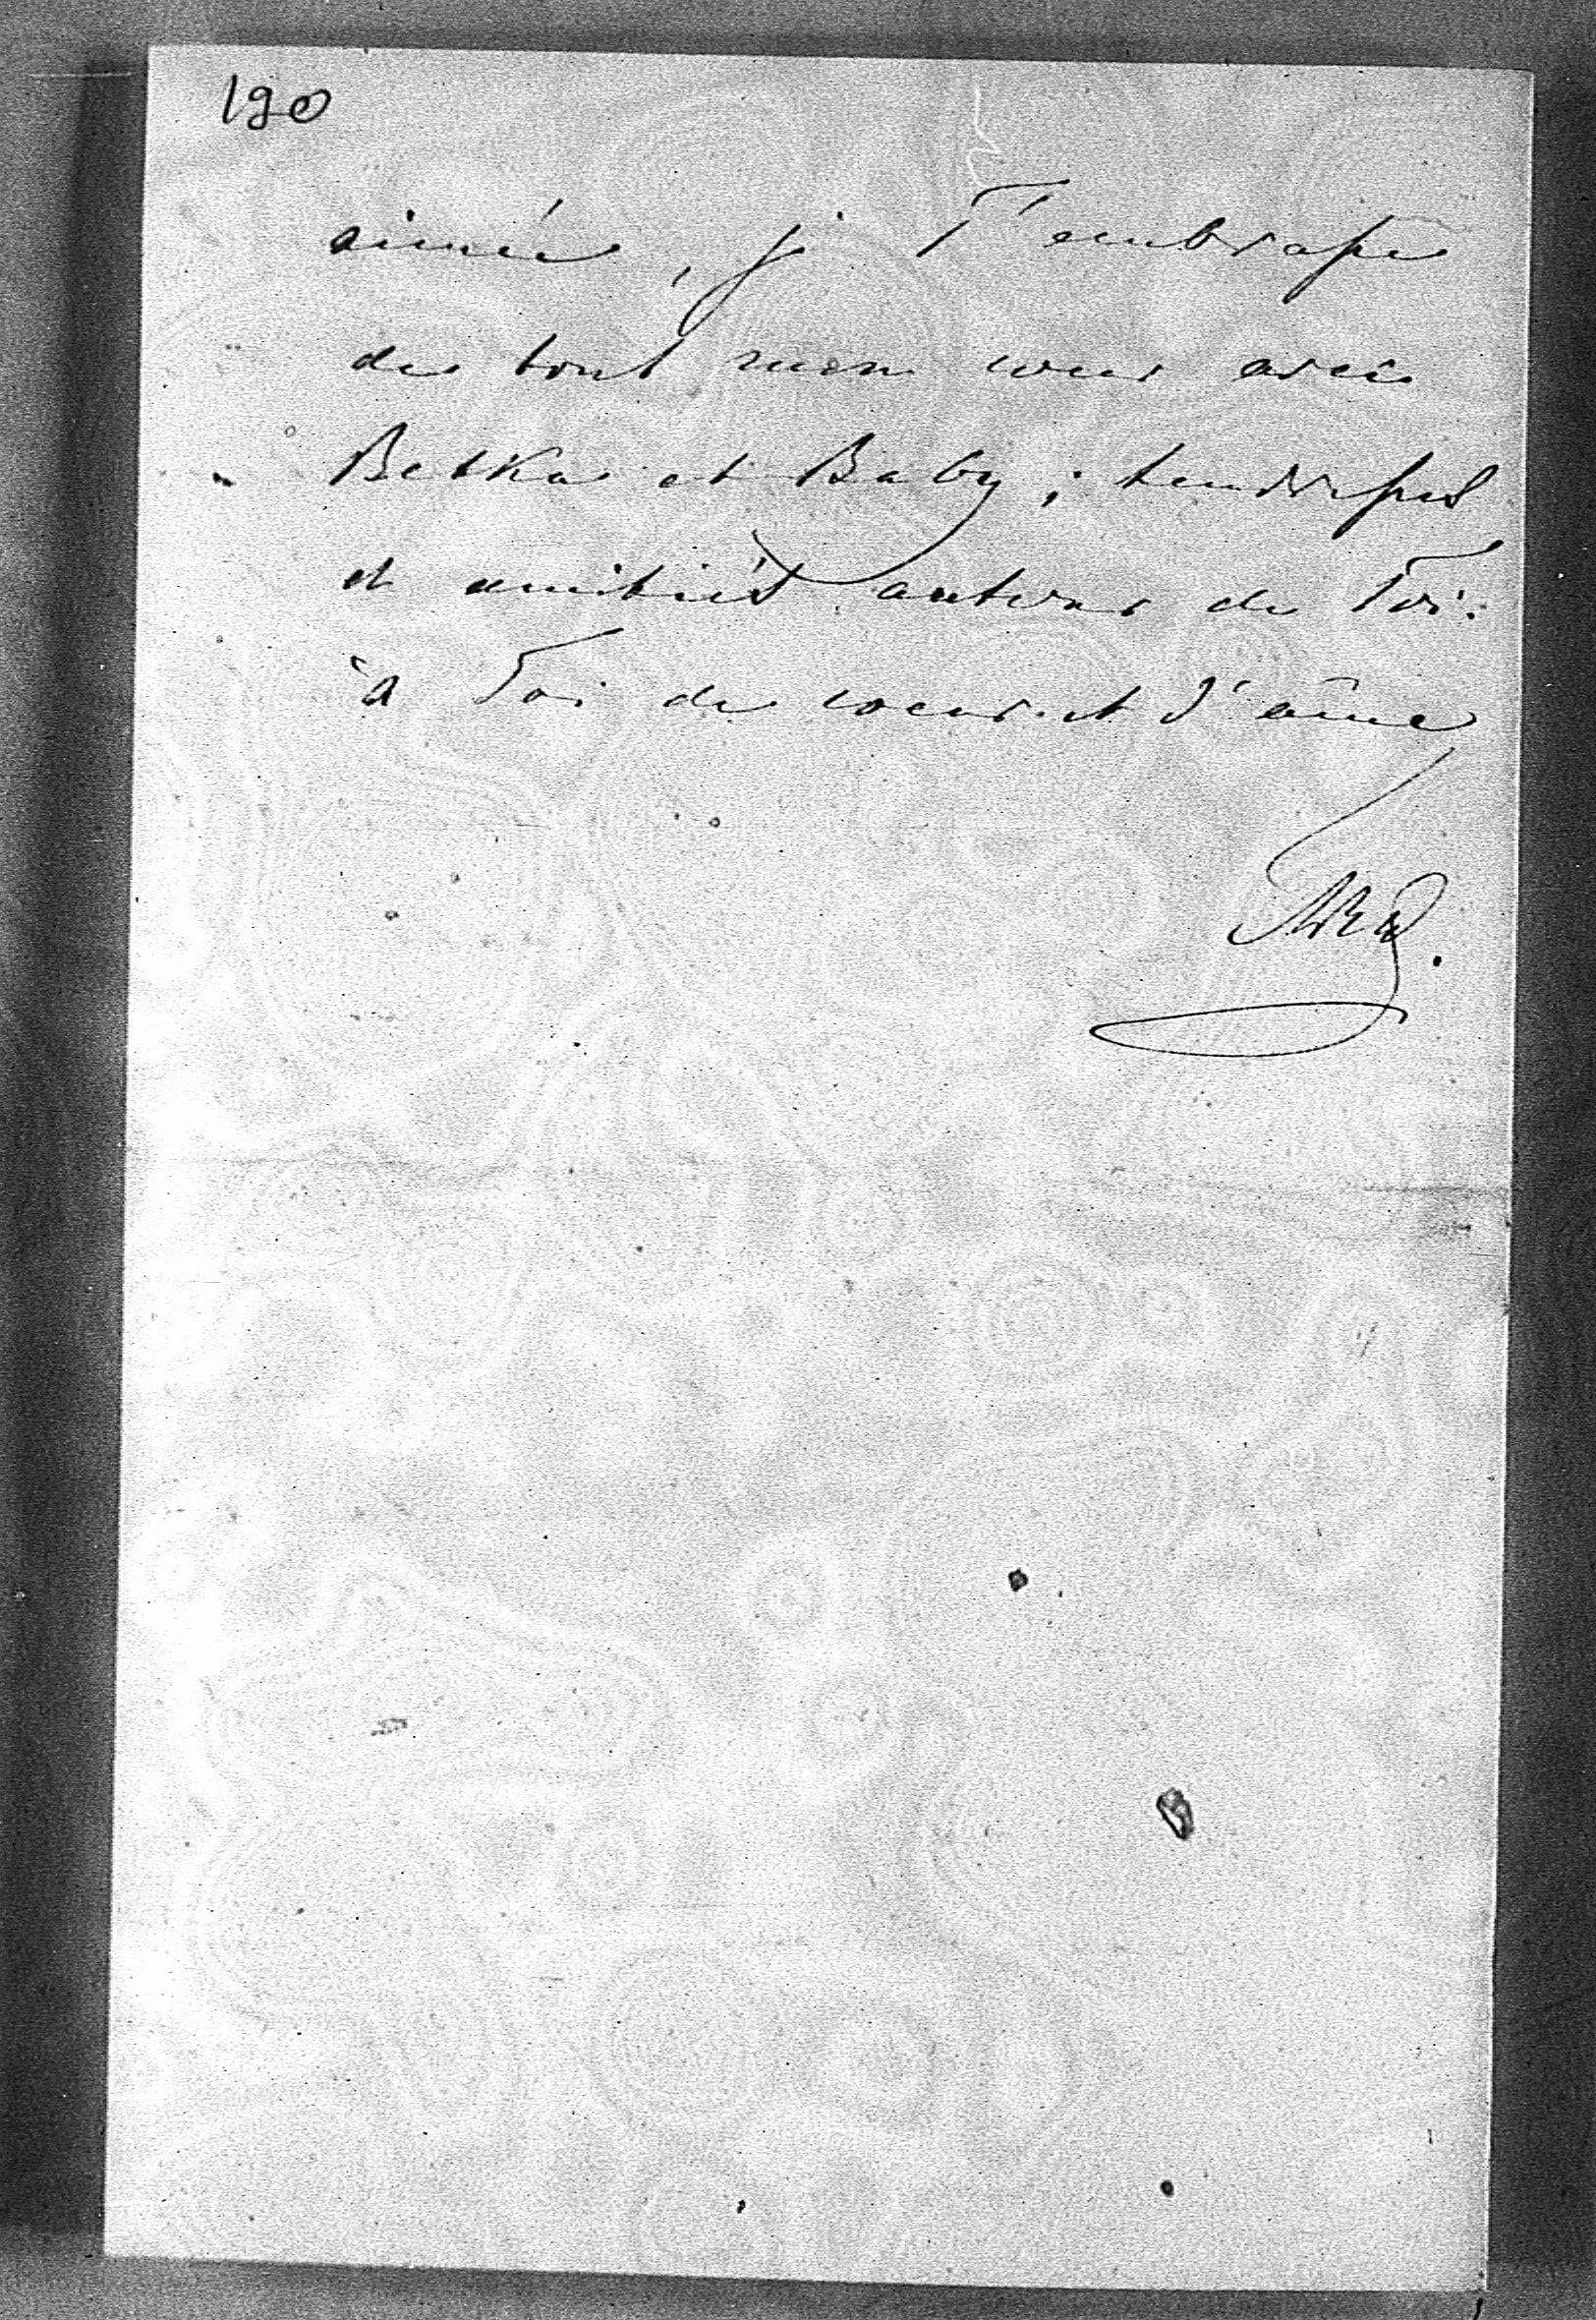 190
aimée, je T'embrasse
de tout mon coeur avec
Betka et Baby; tendresses
et amitiés autour de Toi.
à Toi de coeur et d'âme